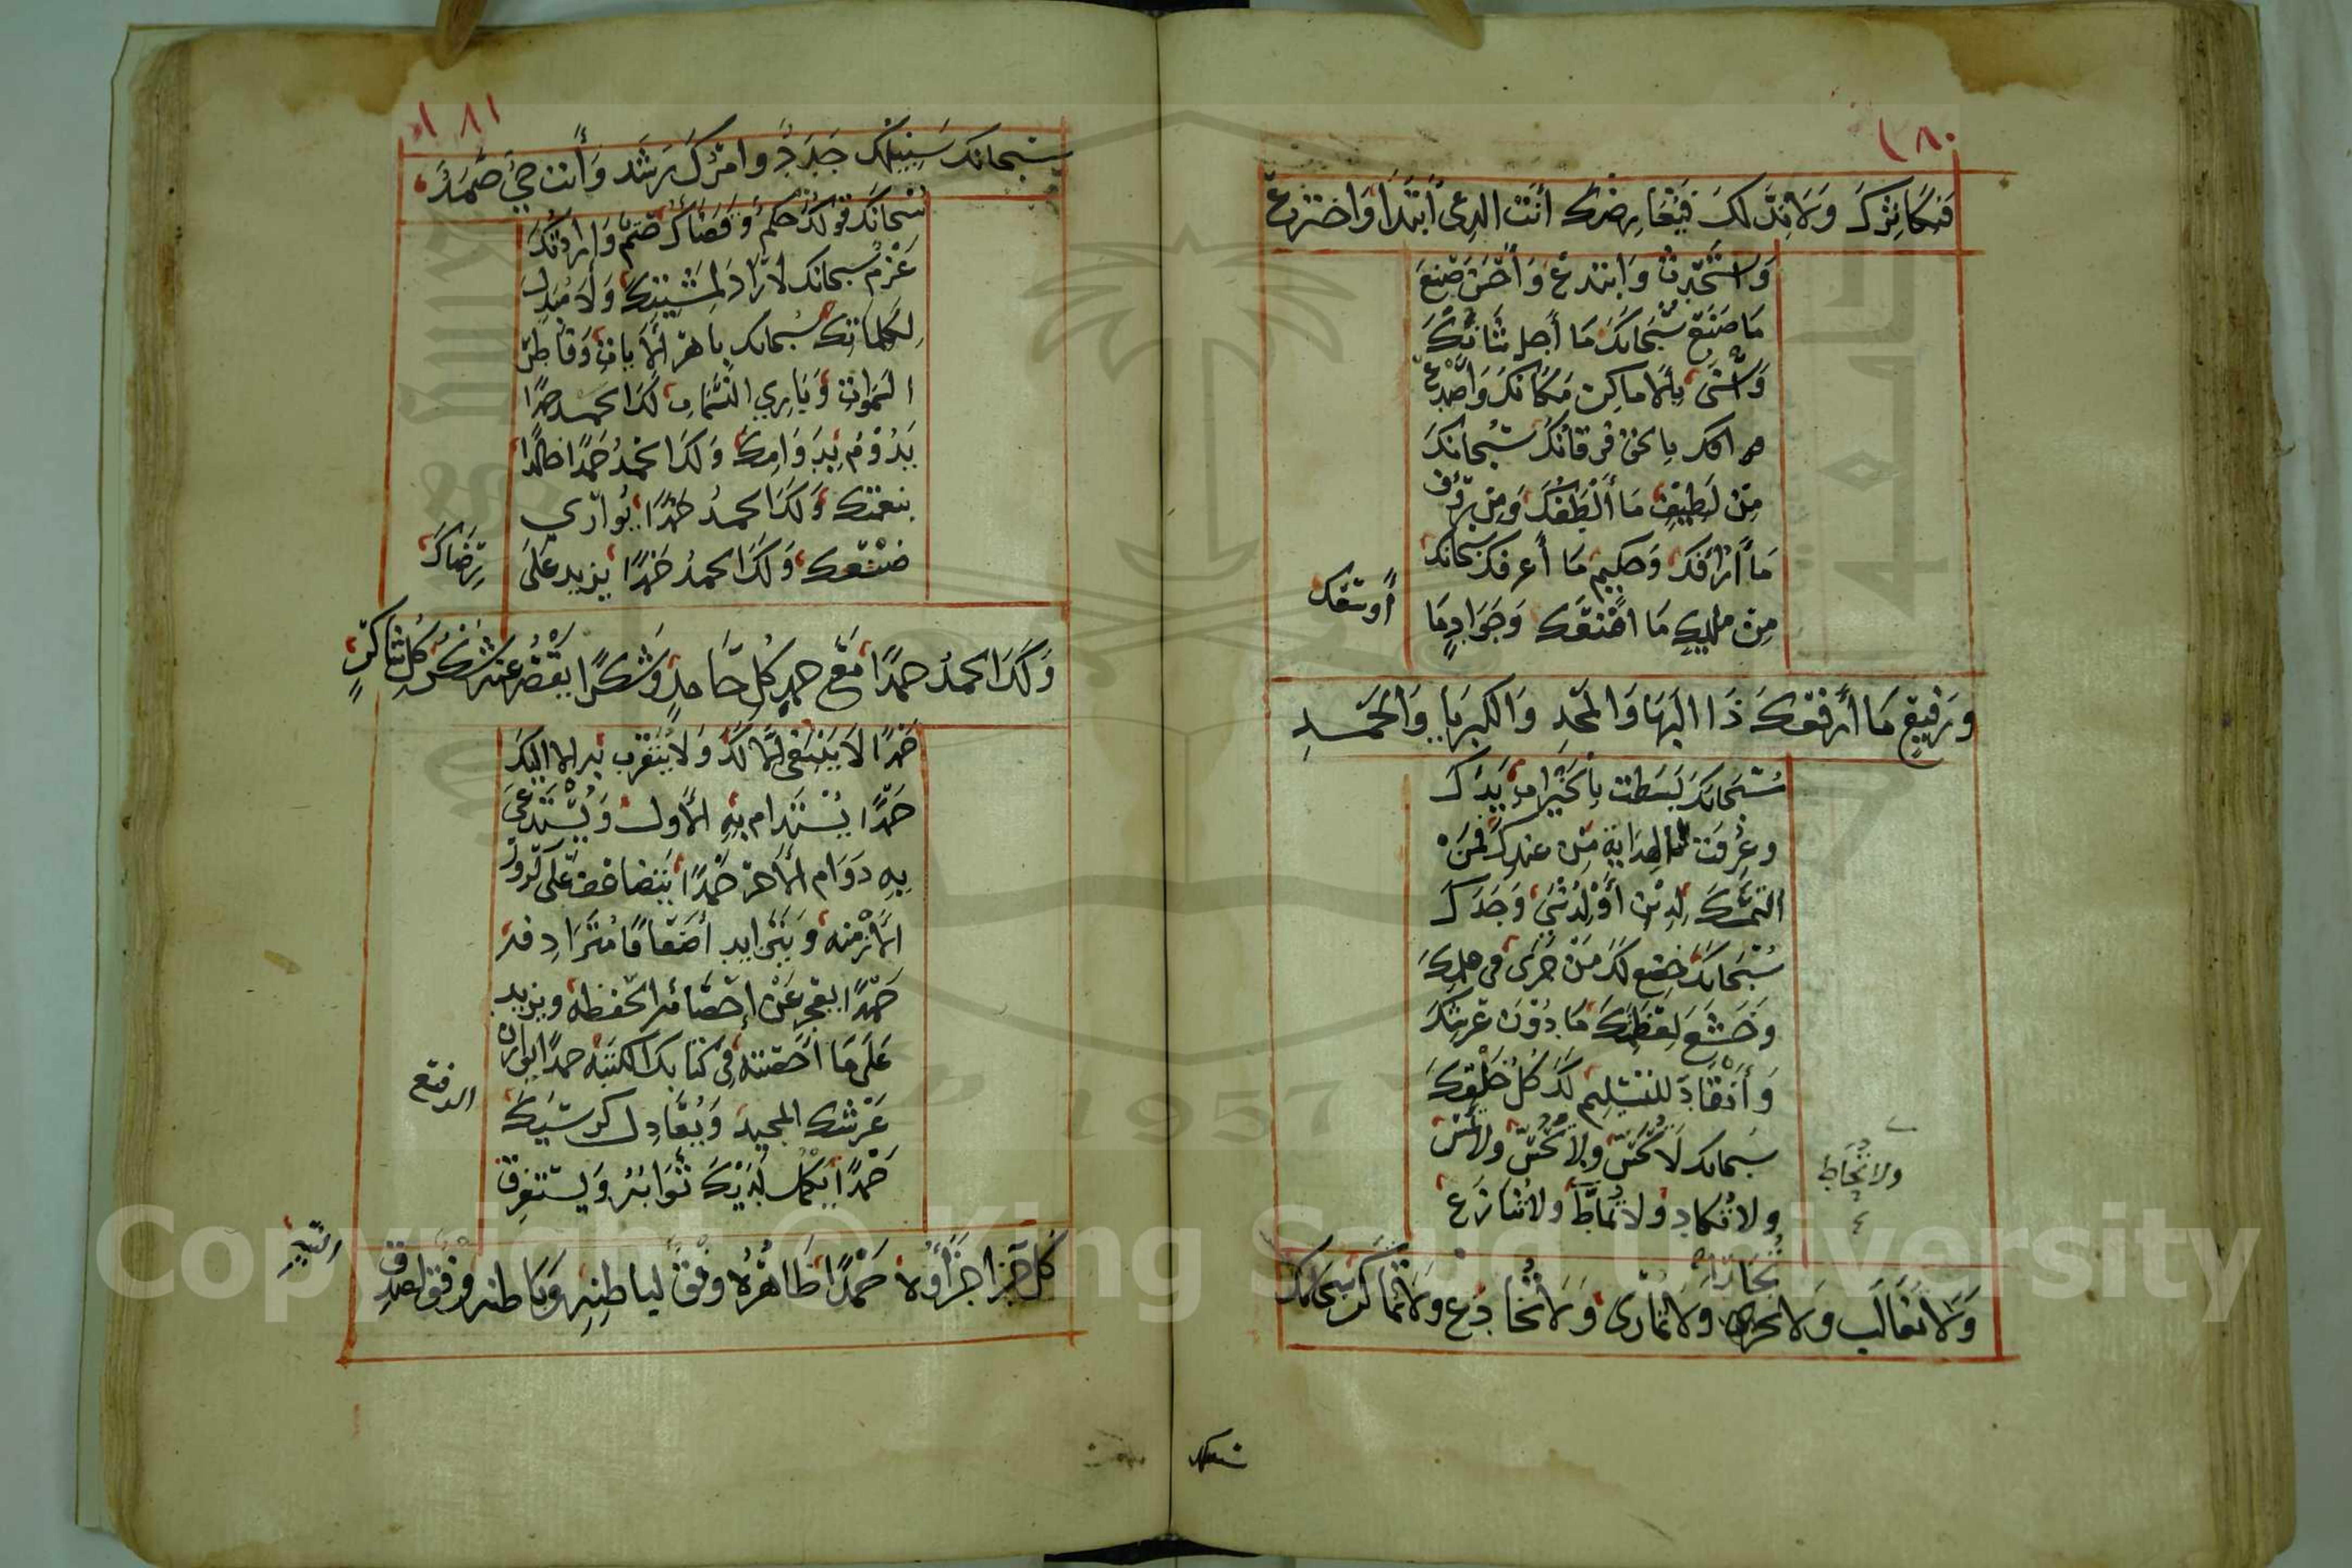 ١٨٠
فيكاثرك ولا ند لك فيعارضك أنت الذي ابتدا واخترع
واستحدث وابتدع وأحسن صنع
ما صنع سبحانك ما أجل شانك
وأسنى في الاماكن مكانك وأصدع
بالحق فرقانك سبحانك
من لطيف ما ألطفك ومن رؤف
ما أرافك وحكيم ما أعرفك سبحانك
من مليك ما امنعك وجواد ما
أوسعك
ورفيع ما أرفعك ذا البها والمجد والكبريا والحمد
سبحانك بسطت بالخيرات يدك
وعرفت الهداية من عندك فمن
التمسك لدين أو لدنيا وجدك
سبحانك خضع لك من جرى في علمك
وخشع لعظمتك ما دون عرشك
وأنقاد للتسليم لك كل خلقك
سبحانك لا تحس ولا تجس ولا تمس
ولا تحاط
ولا تكاد ولا تماط ولا تنازع
ولا تغالب ولا تجارى ولا تمارى ولا تخادع ولا تماكر سبحانك
سبيلك
١٨١
سبحانك سبيلك جدد وامرك رشد وأنت حي صمد
سبحانك قولك حكم وقضاك حتم وارادتك
عزم سبحانك لا راد لمشيتك ولا مبدل
لكلماتك سبحانك باهر الآيات وفاطر
السموات وباري النسمات لك الحمد حمدا
يدوم بدوامك ولك الحمد حمدا خالدا
بنعمتك ولك الحمد حمدا يوازي
صنعك ولك الحمد حمدا يزيد على
رضاك
ولك الحمد حمدا مع حمد كل حامد وشكرا يقصر عنه شكر كل شاكر
حمدا لا ينبغي الا لك ولا يتقرب به الا اليك
حمدا يستدام به الأول ويستدعى
به دوام الآخر حمدا يتضاعف على كرور
الأزمنه ويتزايد أضعافا مترادفه
حمدا يعجز عن إحصائه الحفظه ويزيد
على ما أحصته في كتابك الكتبه حمدا يوازن
عرشك المجيد ويعادل كرسيك
الرفيع
حمدا يكمل لديك ثوابه ويستغرق
كل جزا جزاؤه حمدا ظاهره وفق لباطنه وباطنه وفق لصدق
النيه
Copyright © King Saud University
1957